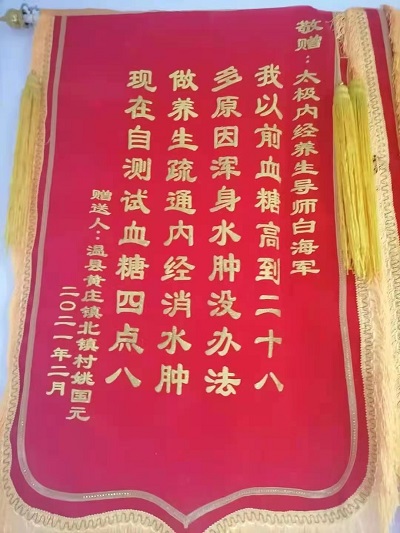 敬赠：太极内经养生导师白海军
我以前血糖高到二十八
多原因浑身水肿没办法
做养生疏通内经消水肿
现在自测试血糖四点八
赠送人：温县黄庄镇北镇村姚国元
二〇二一年二月